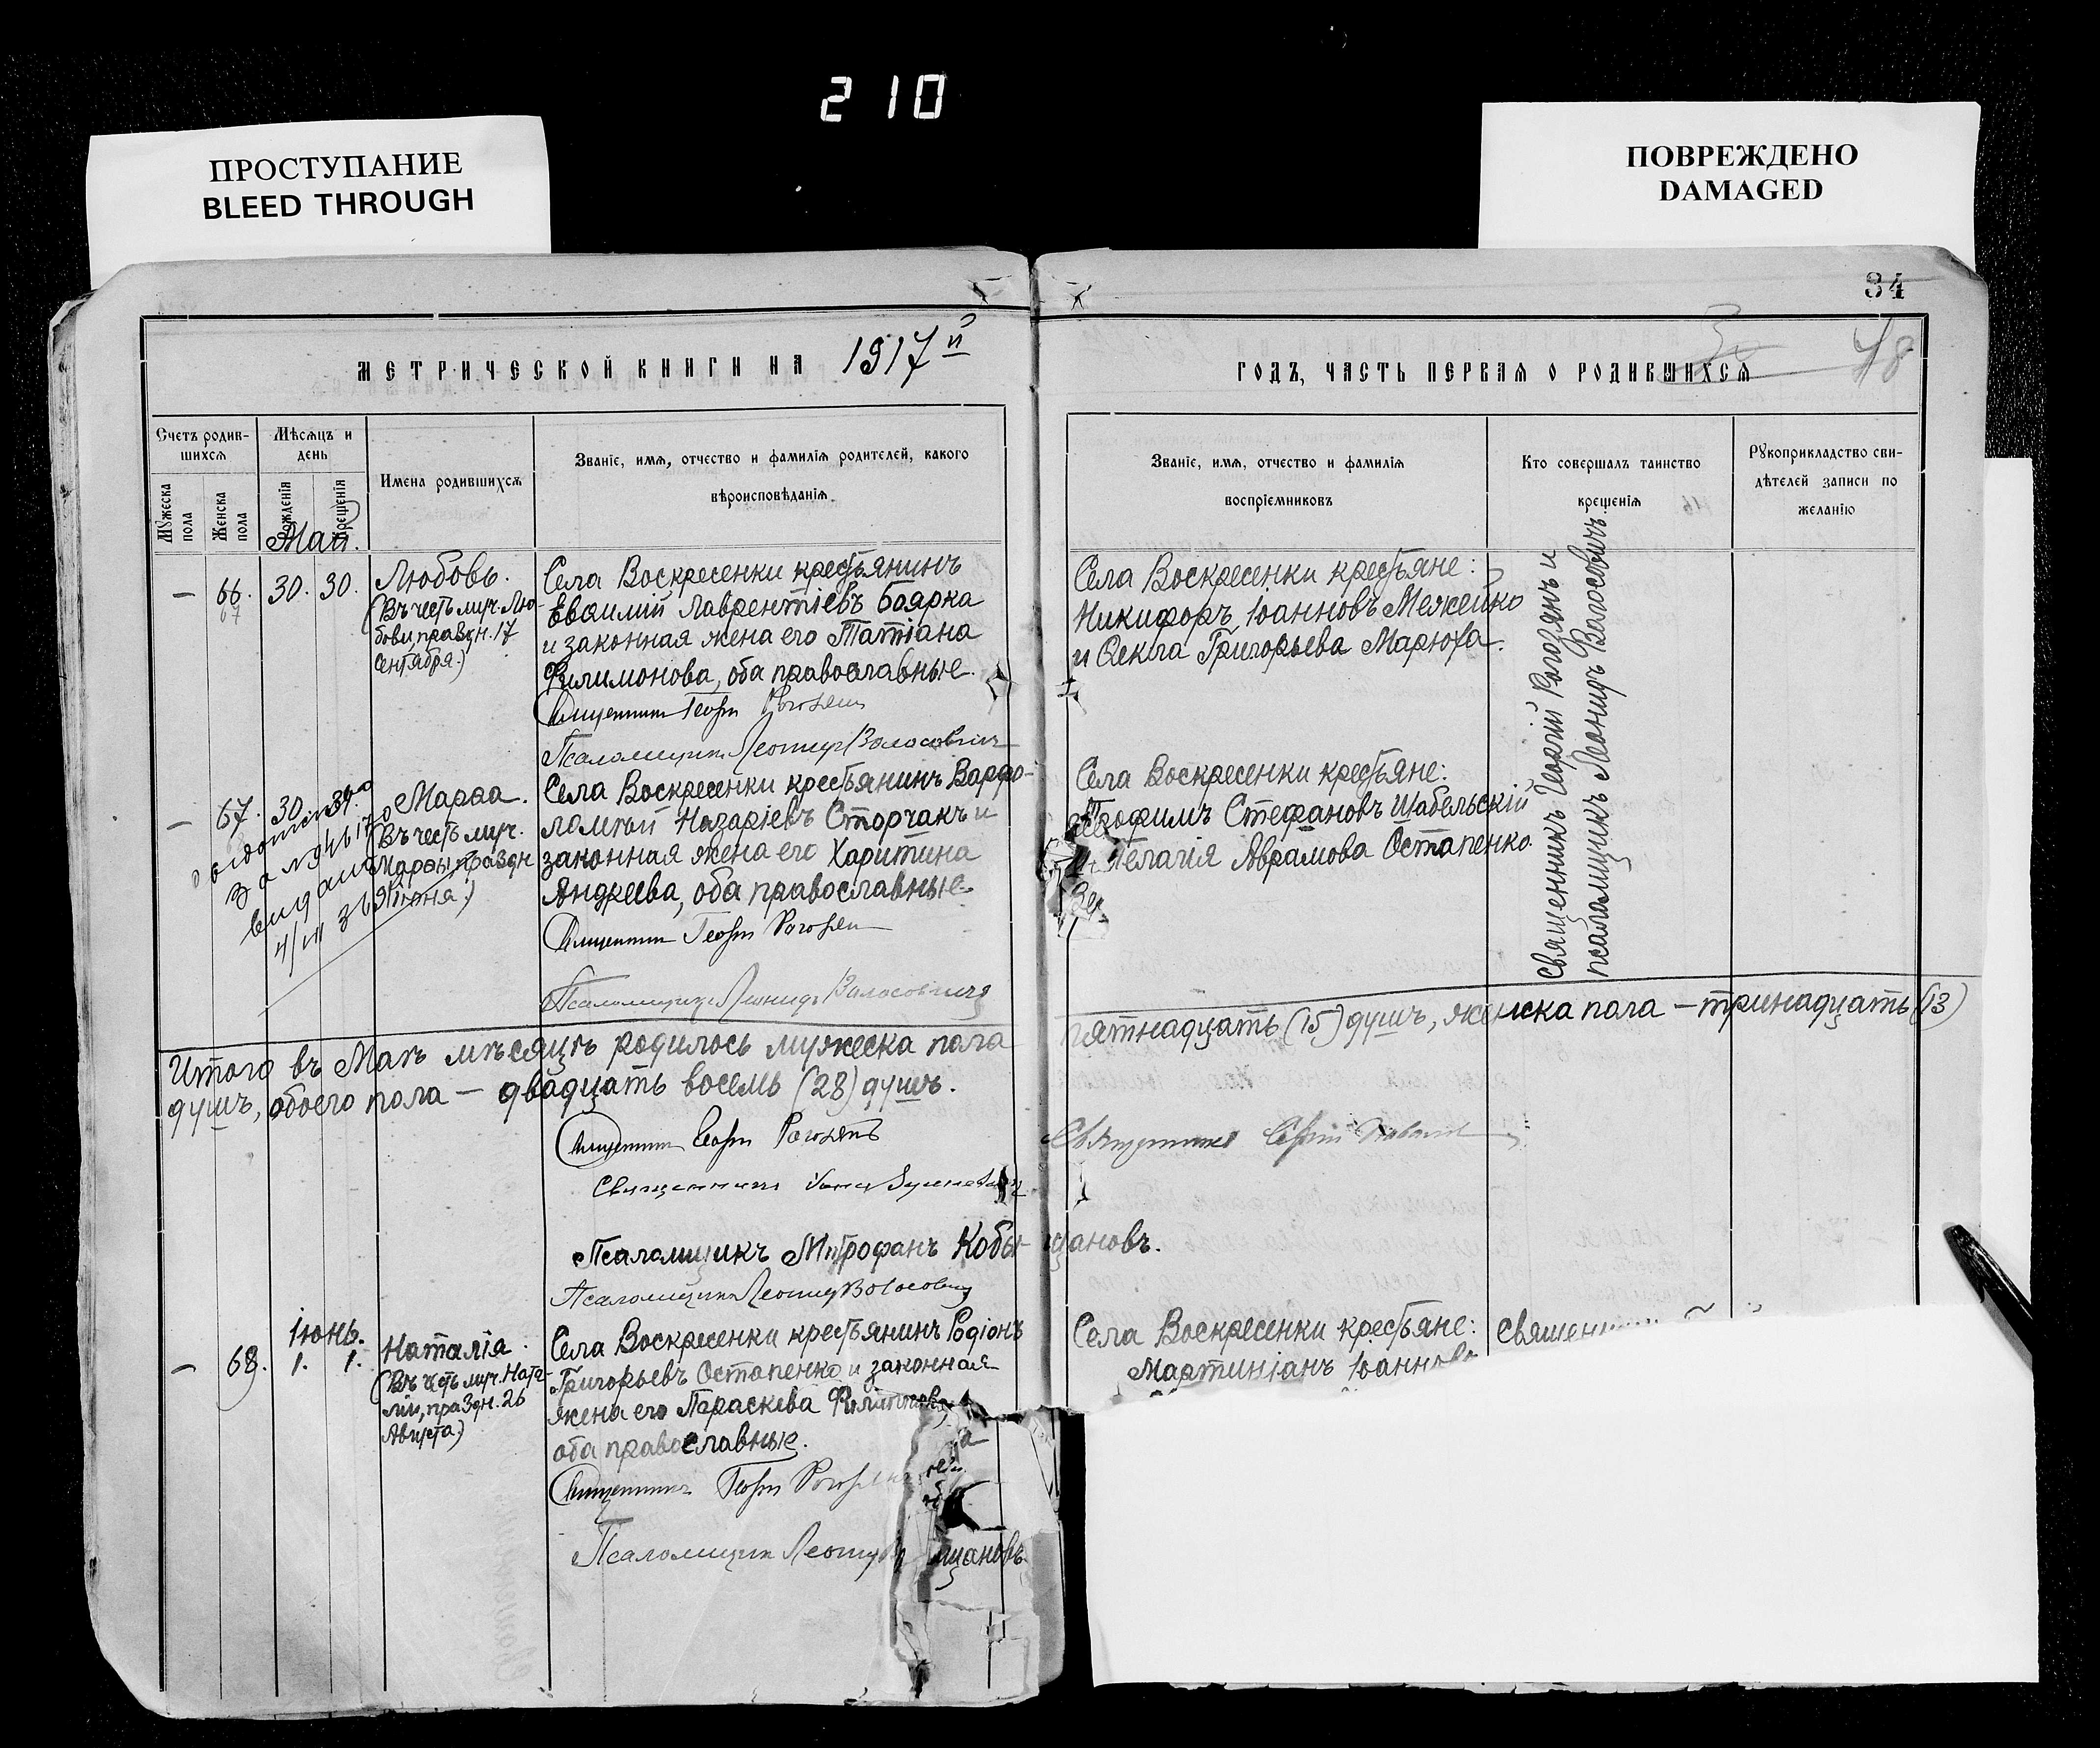 210
ПРОСТУПАНИЕ
BLEED THROUGH
ПОВРЕЖДЕНО
DAMAGED
34
48
МЕТРИЧЕСКОЙ КНИГИ НА 1917й
ГОДЪ, ЧАСТЬ ПЕРВАЯ О РОДИВШИХСЯ
Счетъ родив-
шихся
Мужеска пола
Женска пола
Мѣсяцъ и
день
рожденія
крещенія
Имена родившихся
Званіе, имя, отчество и фамилія родителей, какого
вѣроисповѣданія.
Званіе, имя, отчество и фамилія
воспріемниковъ
Кто совершалъ таинство
крещенія
Рукоприкладство сви-
дѣтелей записи по
желанію
Май.
— 66. 30. 30.
67
Любовь.
(Въ честь муч. Лю-
бови, праздн. 17
Сентября.)
Села Воскресенки крестьянинъ
Евѳимій Лаврентіевъ Боярка
и законная жена его Татіана
Филимонова, оба православные.
Священникъ Георгій Рогозянъ
Псаломщикъ Леонидъ Волосовичъ
Села Воскресенки крестьяне:
Никифоръ Іоанновъ Межейко
и Ѳекла Григорьева Марюха.
Священникъ Георгій Рогозянъ и
псаломщикъ Леонидъ Волосовичъ.
— 67. 30.
Марѳа.
(Въ честь муч.
Марѳы, праздн.
9 Іюня.)
Села Воскресенки крестьянинъ Варѳо-
ломѣй Назаріевъ Сторчакъ и
законная жена его Харитина
Андреева, оба православные.
Священникъ Георгій Рогозянъ
Псаломщикъ Леонидъ Волосовичъ
Села Воскресенки крестьяне:
Трофимъ Стефановъ Шабельскій
и Пелагія Аврамова Остапенко.
Итого въ Маѣ мѣсяцѣ родилось мужеска пола
пятнадцать (15) душъ, женска пола — тринадцать (13)
душъ, обоего пола — двадцать восемь (28) душъ.
Священникъ Георгій Рогозянъ
Священникъ
Священникъ
Псаломщикъ Митрофанъ Кобы-
щановъ.
Псаломщикъ Леонидъ Волосовичъ
Іюнь.
— 68. 1. 1.
Наталія.
(Въ честь муч. Ната-
ліи, праздн. 26
Августа.)
Села Воскресенки крестьянинъ Родіонъ
Григорьевъ Остапенко и законная
жена его Параскева
оба православные.
Священникъ Георгій Рогозянъ
Псаломщикъ Леонидъ
щановъ
Села Воскресенки крестьяне:
Мартиніанъ Іоанновъ